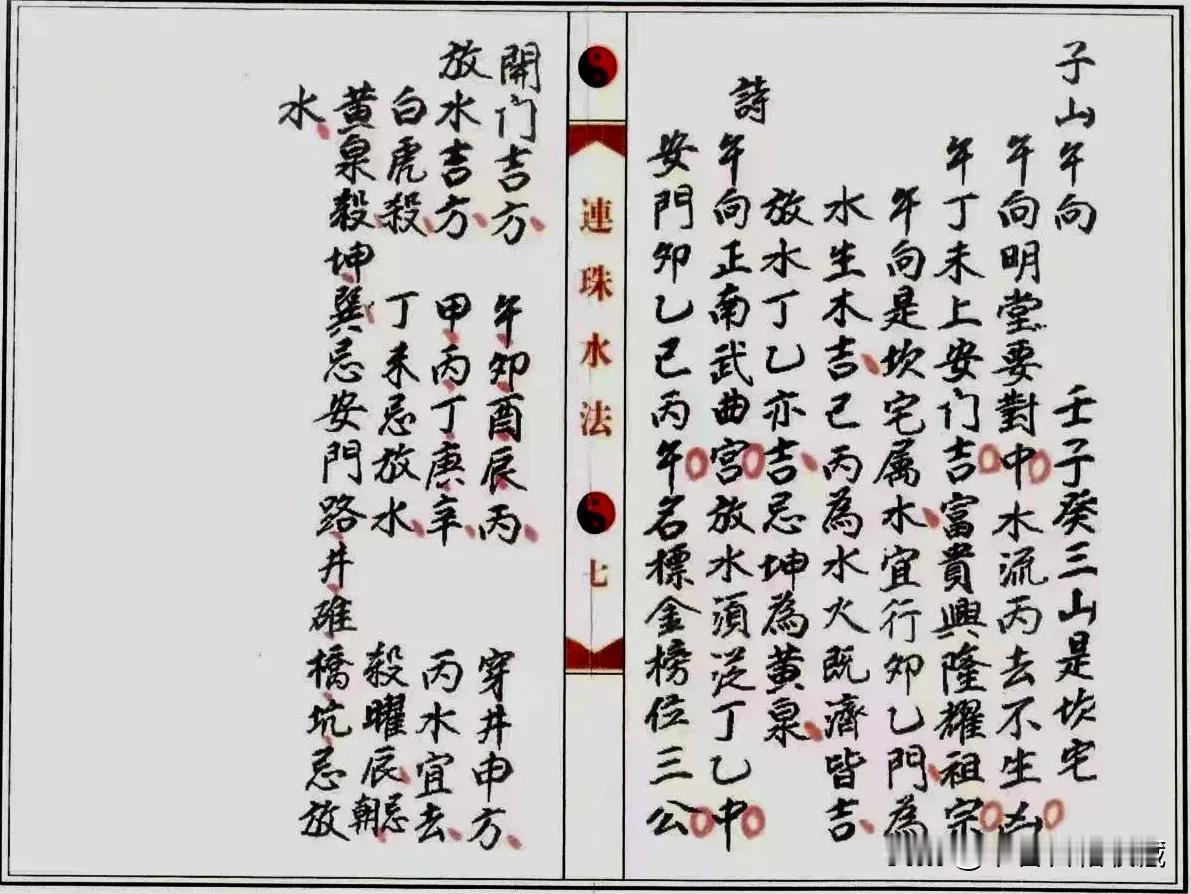 子山午向 壬子癸三山是坎宅
午向明堂要對中水流丙去不生凶
午丁未上安门吉富貴興隆耀祖宗
午向是坎宅属水宜行卯乙門為
水生木吉巳丙為水火既濟皆吉
放水丁乙亦吉忌坤為黄泉
詩
午向正南武曲宮放水須从丁乙中
安門卯乙巳丙午名標金榜位三公
連珠水法 七
開门吉方 午卯酉辰丙 穿井申方
放水吉方 甲丙丁庚辛 丙水宜去
白虎殺 丁未忌放水 殺曜辰忌朝
黄泉殺坤巽忌安門路井碓橋坑忌放
水